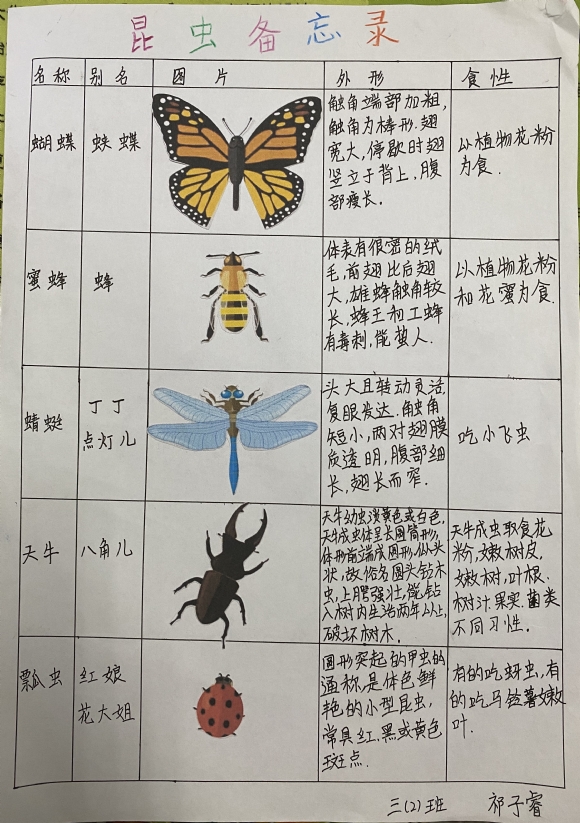 昆虫备忘录
名称 别名 图片 外形 食性
蝴蝶
蛱蝶
触角端部加粗,
触角为棒形.翅
宽大,停歇时翅
竖立于背上,腹
部瘦长.
以植物花粉
为食.
蜜蜂
蜂
体表有很密的绒
毛,前翅比后翅
大,雄蜂触角较
长,蜂王和工蜂
有毒刺,能蜇人.
以植物花粉
和花蜜为食.
蜻蜓
丁丁
点灯儿
头大且转动灵活,
复眼发达.触角
短小,两对翅膜
质透明,腹部细
长,翅长而窄.
吃小飞虫
天牛
八角儿
天牛幼虫淡黄色或白色,
天牛成虫体呈长圆筒形,
体形前端成圆形,似头
状,故俗名圆头钻木
虫,上腭强壮,能钻
入树内生活两年以上,
破坏树木.
天牛成虫取食花
粉,嫩树皮,
嫩树,叶根.
树汁.果实.菌类
不同习性.
瓢虫
红娘
花大姐
圆形突起的甲虫的
通称,是体色鲜
艳的小型昆虫,
常具红.黑或黄色
斑点.
有的吃蚜虫,有
的吃马铃薯嫩
叶.
三(2)班 祁子睿